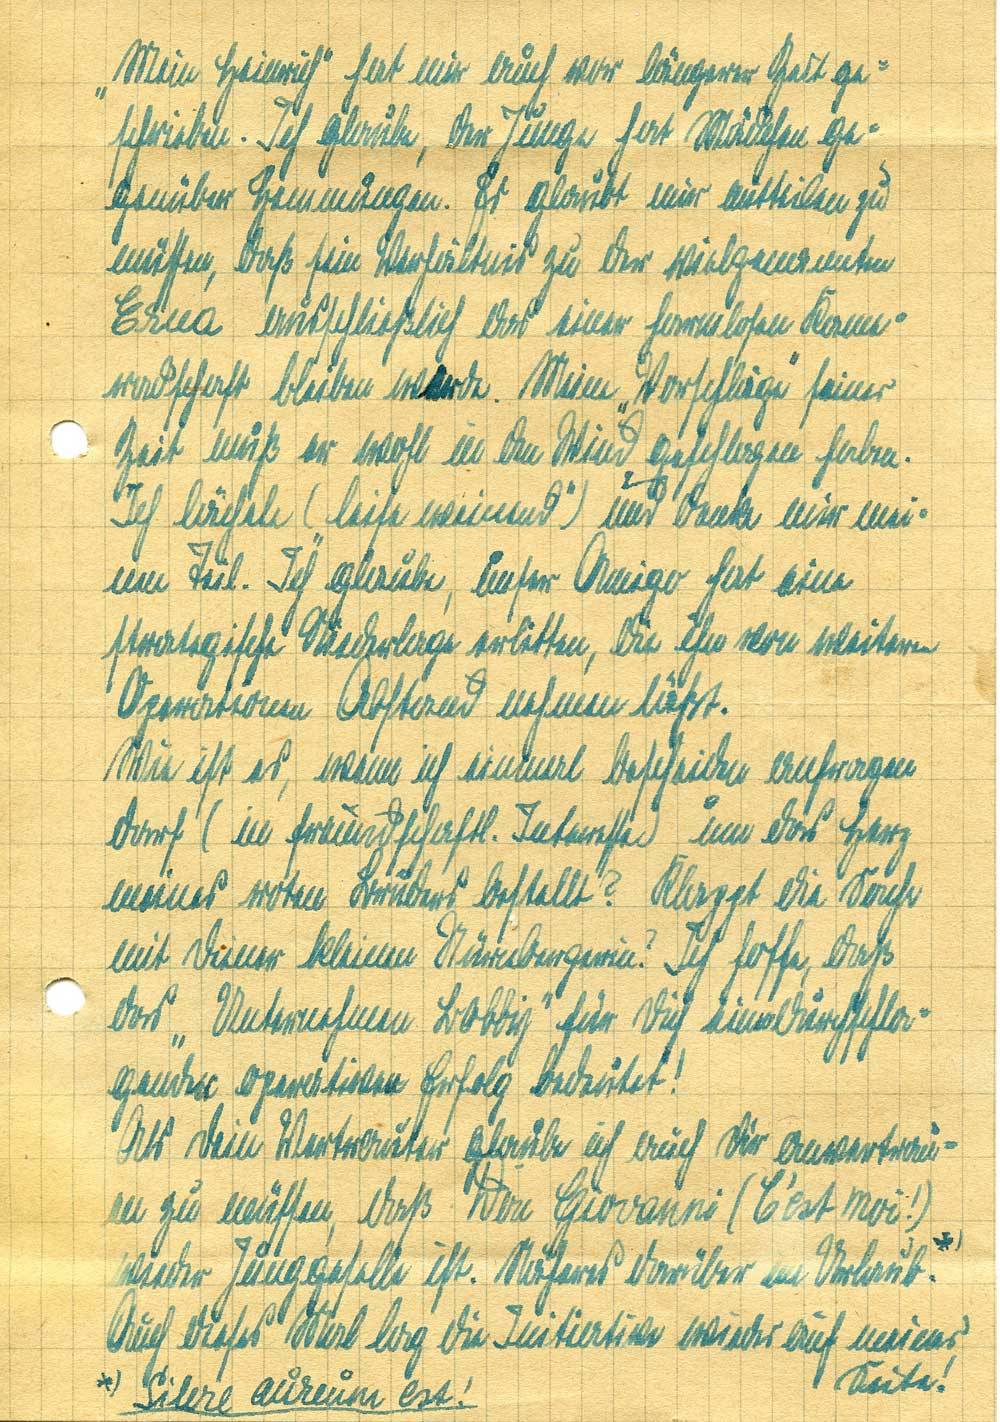 „Mein Heinrich“ hat mir auch vor längerer Zeit ge=
schrieben. Ich glaube, der Junge hat Mädchen ge=
genüber Hemmungen. Er glaubt mir mitteilen zu
müssen, daß sein Verhältnis zu der vielgenannten
Erna ausschließlich das einer harmlosen Kame=
radschaft bleiben werde. Meine „Vorschläge“ seiner
Zeit muß er wohl in den Wind geschlagen haben.
Ich lächele („leise weinend“) und denke mir mei=
nen Teil. Ich glaube, unser Amigo hat eine
strategische Niederlage erlitten, die ihn von weiteren
Operationen Abstand nehmen läßt.
Wie ist es, wenn ich einmal bescheiden anfragen
darf (im freundschaftl. Interesse) um das Herz
meines roten Bruders bestellt? Klappt die Sache
mit Deiner kleinen Nürnbergerin? Ich hoffe, daß
das „Unternehmen Lobby“ für Dich einen durchschla=
genden operativen Erfolg bedeutet!
Als Dein Vertrauter glaube ich auch Dir anvertrau=
en zu müssen, daß Don Giovanni (C'est moi!)
wieder Junggeselle ist. Näheres darüber im Urlaub. *)
Auch dieses Mal lag die Initiative wieder auf meiner
Seite!
*) Silere aureum est!